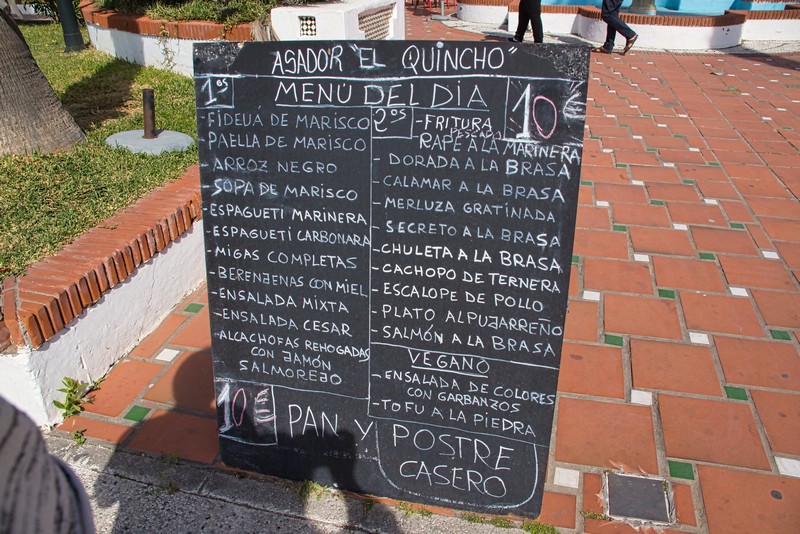 ASADOR "EL QUINCHO"
MENÚ DEL DÍA
10€
1ºs
- FIDEUA DE MARISCO
- PAELLA DE MARISCO
- ARROZ NEGRO
- SOPA DE MARISCO
- ESPAGUETI MARINERA
- ESPAGUETI CARBONARA
- MIGAS COMPLETAS
- BERENJENAS CON MIEL
- ENSALADA MIXTA
- ENSALADA CESAR
- ALCACHOFAS REHOGADAS
CON JAMÓN
SALMOREJO
2ºs
- FRITURA
PESCADO
RAPE A LA MARINERA
- DORADA A LA BRASA
- CALAMAR A LA BRASA
- MERLUZA GRATINADA
- SECRETO A LA BRASA
- CHULETA A LA BRASA
- CACHOPO DE TERNERA
- ESCALOPE DE POLLO
- PLATO ALPUJARREÑO
- SALMÓN A LA BRASA
VEGANO
- ENSALADA DE COLORES
CON GARBANZOS
- TOFU A LA PIEDRA
10€
PAN Y POSTRE
CASERO